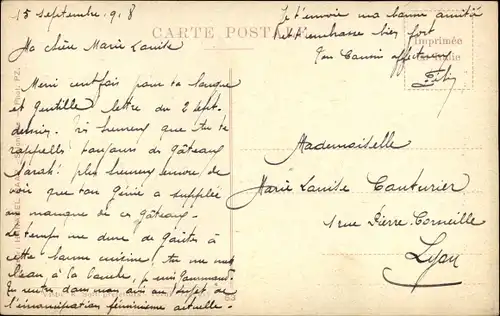 15 septembre 98
CARTE POSTALE
Je t'envoie ma bonne amitié
et t'embrasse bien fort
Ton Cousin affectueux
Imprimée
Ma chère Marie Louise
Merci cent fois pour ta longue
et gentille lettre du 2 sept.
dernier. Très heureux que tu te
rappelles toujours du gâteau
Sarah! plus heureux encore de
voir que ton génie a suppléé
au manque de ce gâteau.
Le temps me dure de goûter à
cette bonne cuisine! tu me mets
l'eau à la bouche, petite gourmande
En outre, mon avis au sujet de
l'émancipation féminisme actuelle.
Mademoiselle
Marie Louise Couturier
1 rue Pierre Corneille
Lyon